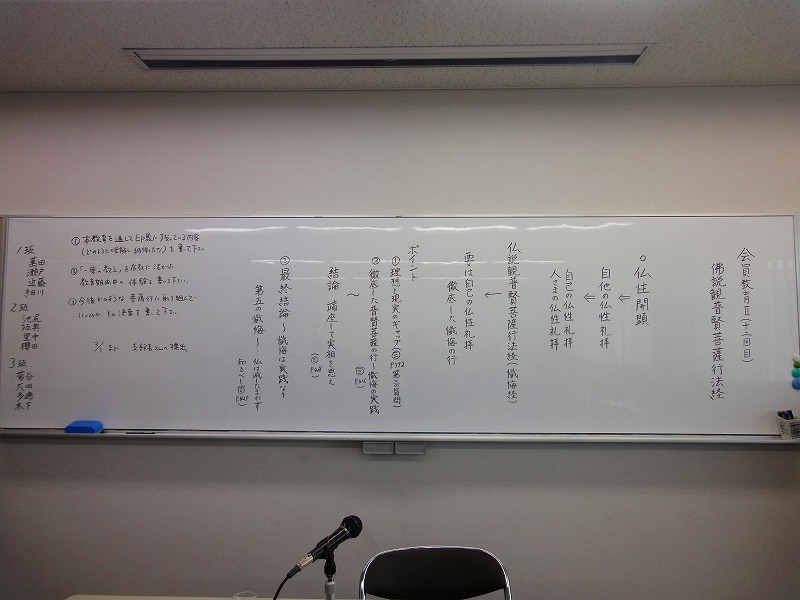 会員教育Ⅱ(十二回目)
佛説観普賢菩薩行法経
○仏性開顕
⇓
自他の仏性礼拝
⇓
自己の仏性礼拝
人さまの仏性礼拝
仏説観普賢菩薩行法経(懺悔経)
↓
要は自己の仏性礼拝
徹底した懺悔の行
ポイント
①理想と現実のギャップ
②徹底した普賢菩薩の行～懺悔の実践
～
結論 端座して実相を思え
③最終結論～懺悔は実践なり
第五の懺悔～仏は滅したまわず
知るべし
①本教育を通して印象に残っている内容
(どのように理解し納得したか)を書いて下さい。
教育期間中の体験を書いて下さい。
③今後どのような菩薩行に取り組んで
いくのか、その決意を書いて下さい。
3/1まで 支部長さんへ提出
1班
萬田
瀬戸
近藤
細川
2班
池尻
坂奥
里中
櫻田
3班
菊谷
太田
多嶋
木下